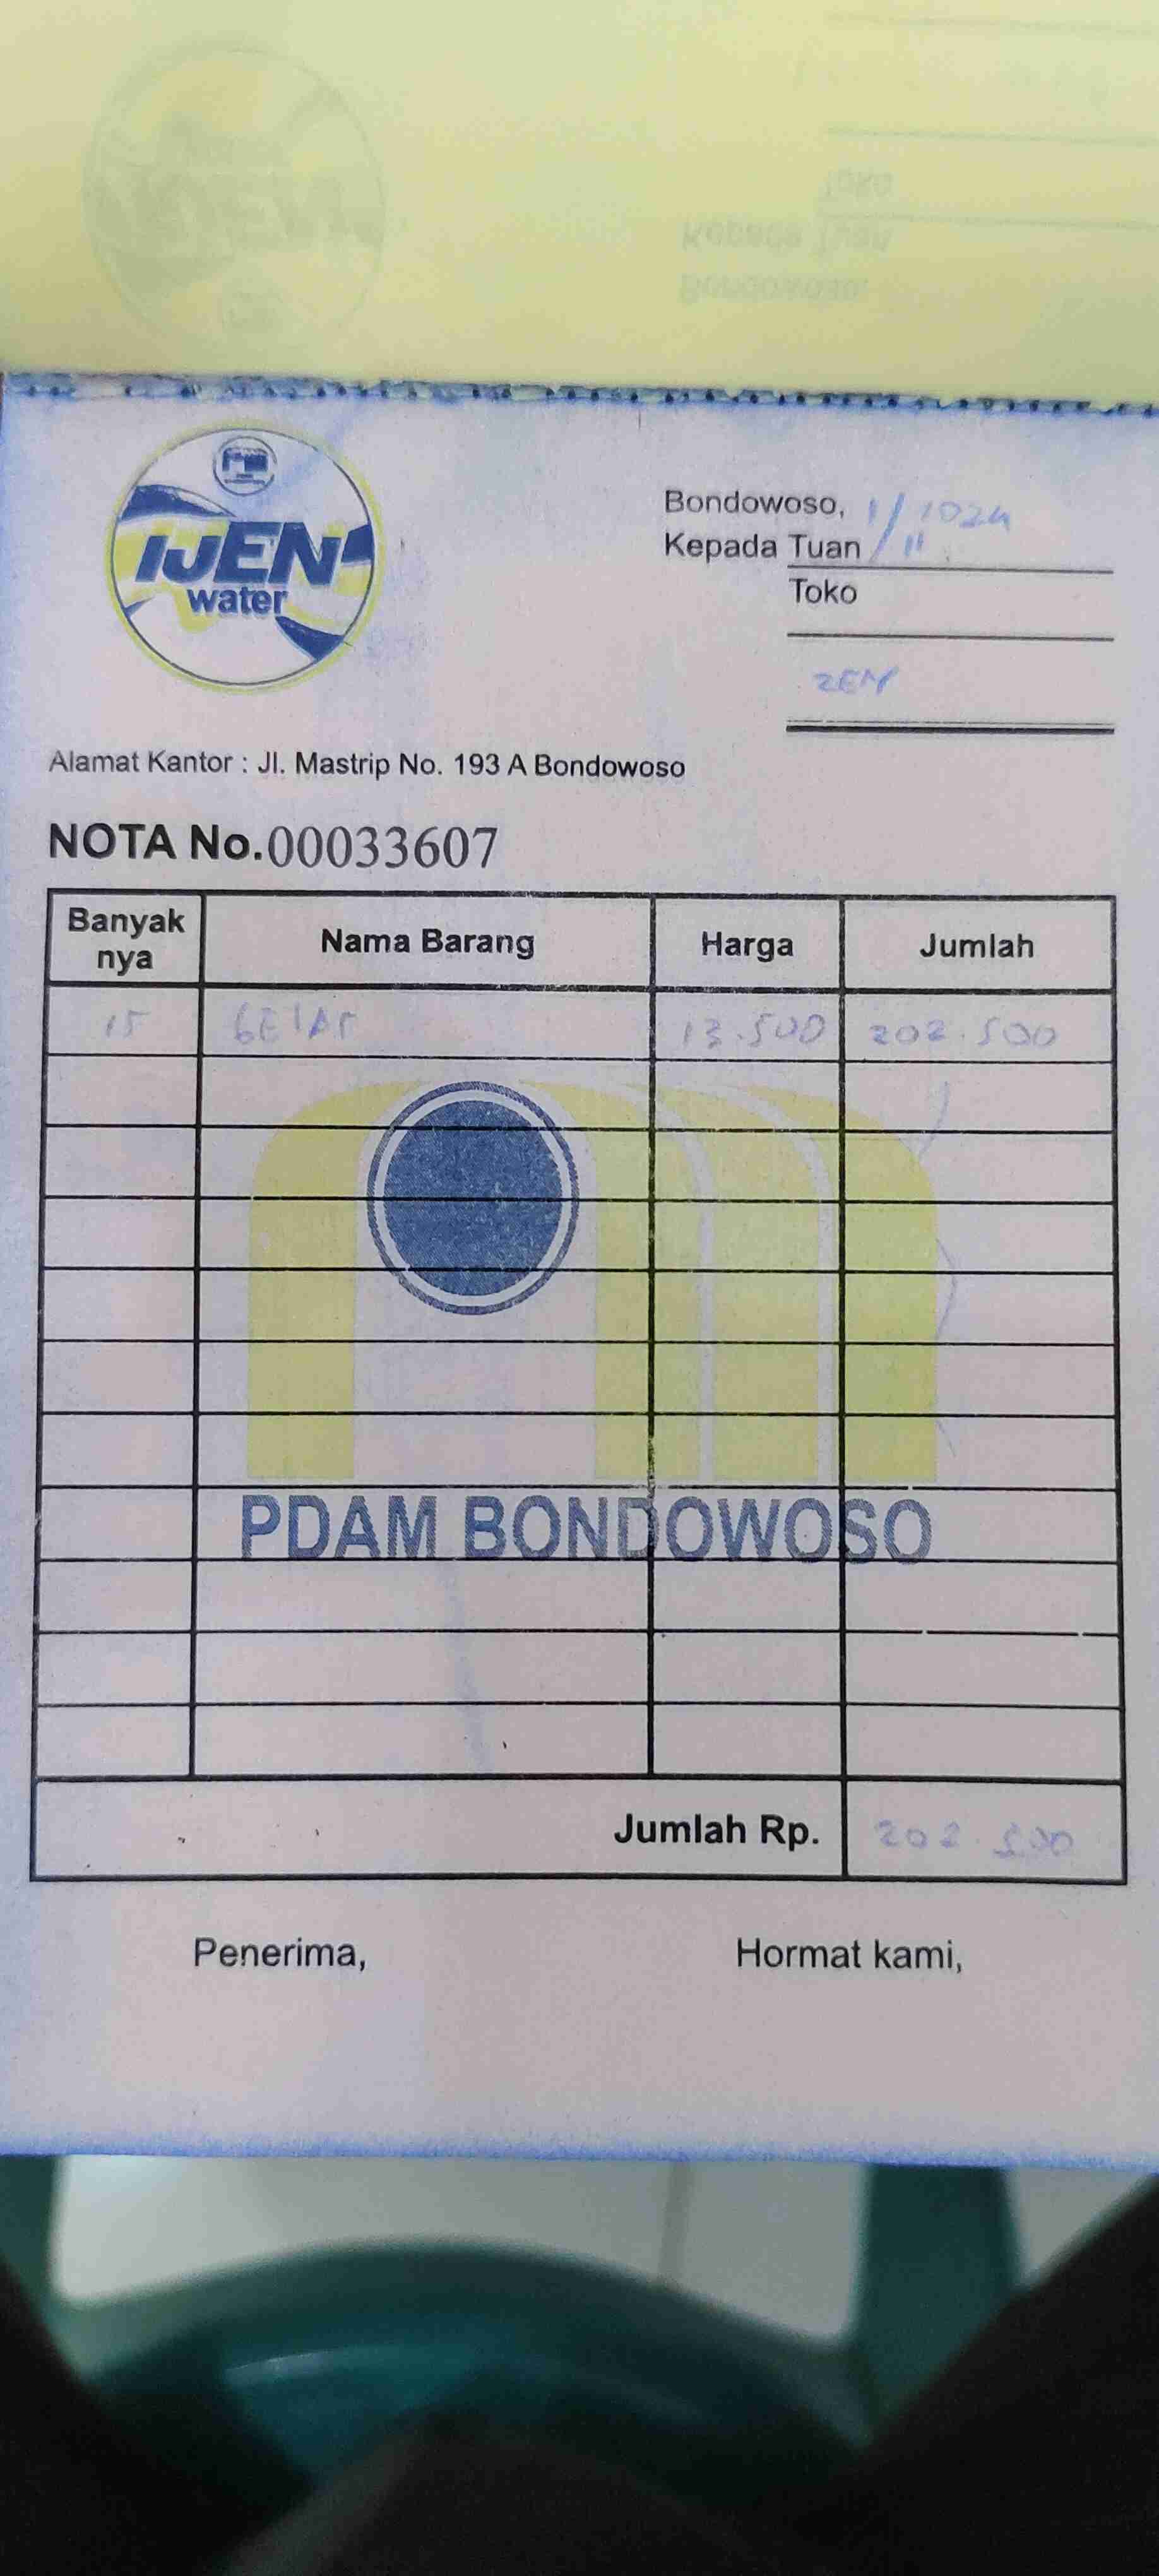 IJEN
water
Bondowoso, 1/11 2024
Kepada Tuan
Toko
ZEN
Alamat Kantor : Jl. Mastrip No. 193 A Bondowoso
NOTA No.00033607
Banyak nya Nama Barang Harga Jumlah
15 GELAS 13.500 202.500
PDAM BONDOWOSO
Jumlah Rp. 202.500
Penerima, Hormat kami,